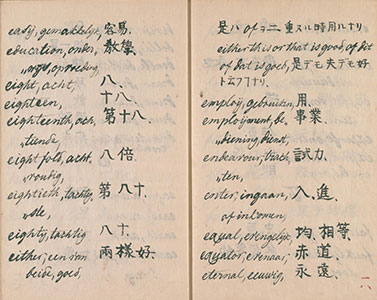 easy, gemakkelyk, 容易.
education, onder, 教學.
eight, acht, 八.
eighteen, 十八.
eighteenth, ach, 第十八.
„tiende,
eight fold, acht, 八倍.
„voudig,
eightieth, tachtig, 第八十.
„ste,
eighty, tachtig 八十.
either, een van 兩樣好.
beide, goed,
是ハ of ヲ二重ヌル時用ルナリ
either this or that is good, of dit
of dat is goed, 是デモ夫デモ好
ト云フナリ.
employ, gebruiken, 用.
employment, be, 事業.
„diening, dienst,
endeavour, trach, 試力.
„ten,
enter, ingaan, 入. 進.
of inkomen,
equal, 均. 相等.
equator, evenaar, 赤道
eternal, eeuwig, 永遠.
一八